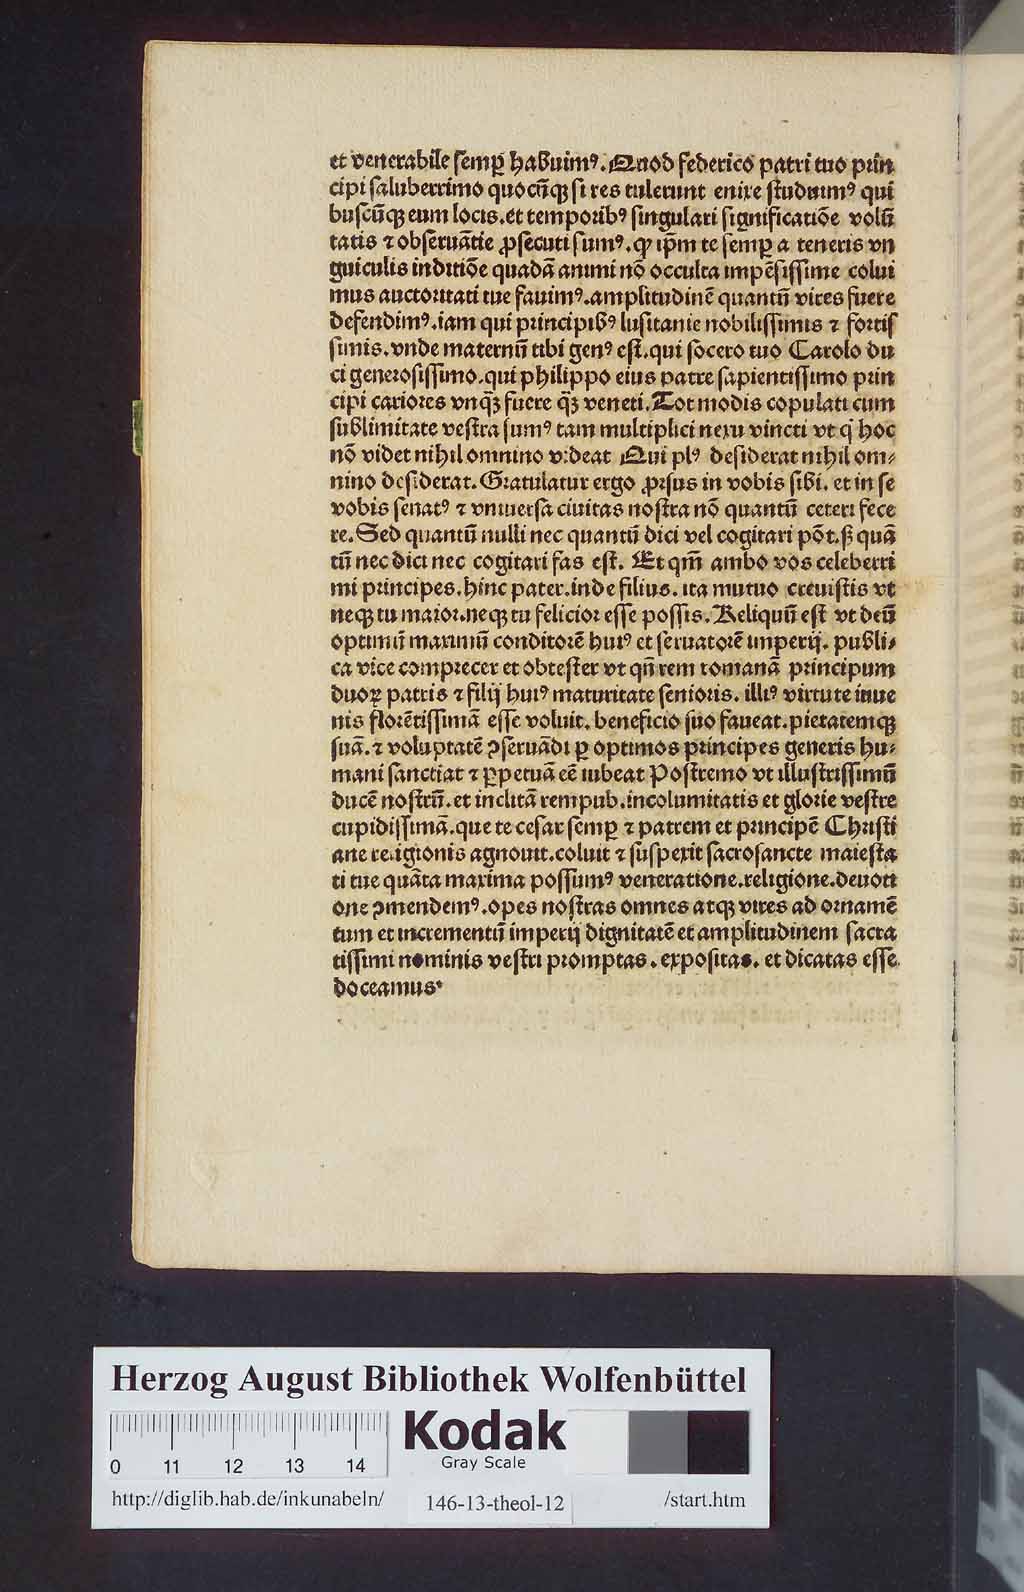 et venerabile semꝑ habuimꝰ. Quod federico patri tuo prin
cipi saluberrimo quocūqꝫ si res tulerunt enixe studuimꝰ qui
buscūqꝫ eum locis. et temporibꝰ singulari significatiōe volū
tatis ⁊ obseruātie ꝓsecuti sumꝰ. ꝙ ip̄m te semꝑ a teneris vn
guiculis inditiōe quadā animi nō occulta impēsissime colui
mus auctoritati tue fauimꝰ. amplitudinē quantū vires fuere
defendimꝰ. iam qui principibꝰ lusitanie nobilissimis ⁊ fortis
simis. vnde maternū tibi genꝰ est. qui socero tuo Carolo du
ci generosissimo. qui philippo eius patre sapientissimo prin
cipi cariores vnqꝫ̄ fuere qꝫ̄ veneti. Tot modis copulati cum
sublimitate vestra sumꝰ tam multiplici nexu vincti vt q̇ hoc
nō videt nihil omnino videat Qui plꝰ desiderat nihil om⸗
nino desiderat. Gratulatur ergo ꝓrsus in vobis sibi. et in se
vobis senatꝰ ⁊ vniuersa ciuitas nostra nō quantū ceteri fece
re. Sed quantū nulli nec quantū dici vel cogitari pōt. ß quā
tū nec dici nec cogitari fas est. Et qm̄ ambo vos celeberri
mi principes. hinc pater. inde filius. ita mutuo creuistis vt
neqꝫ tu maior. neqꝫ tu felicior esse possis. Reliquū est vt deū
optimū maximū conditorē huiꝰ et seruatorē imperij. publi⸗
ca vice comprecer et obtester vt qn̄ rem romanā principum
duoꝝ patris ⁊ filij huiꝰ maturitate senioris. illiꝰ virtute iuue
nis florētissimā esse voluit. beneficio suo faueat. pietatemqꝫ
suā. ⁊ voluptatē ꝯseruādi ꝑ optimos principes generis hu⸗
mani sanctiat ⁊ ꝑpetuā eē iubeat Postremo vt illustrissimū
ducē nostrū. et inclitā rempub. incolumitatis et glorie vestre
cupidissimā. que te cesar semꝑ ⁊ patrem et principē Christi
ane religionis agnouit. coluit ⁊ suspexit sacrosancte maiesta
ti tue quāta maxima possumꝰ veneratione. religione. deuoti
one ꝯmendemꝰ. opes nostras omnes atqꝫ vires ad ornamē
tum et incrementū imperij dignitatē et amplitudinem sacra
tissimi nominis vestri promptas. expositas. et dicatas esse
doceamus.
Herzog August Bibliothek Wolfenbüttel
Kodak
Gray Scale
0 11 12 13 14
http://diglib.hab.de/inkunabeln/ 146-13-theol-12 /start.htm